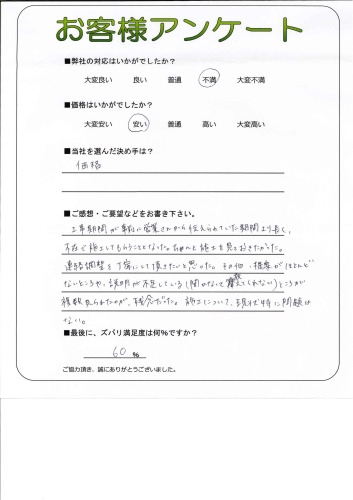 お客様アンケート
■弊社の対応はいかがでしたか？
大変良い 良い 普通 不満 大変不満
■価格はいかがでしたか？
大変安い 安い 普通 高い 大変高い
■当社を選んだ決め手は？
価格
■ご感想・ご要望などをお書き下さい。
工事期間が事前に営業さんから伝えられていた期間より長く、
不在で施工してもらうことになった。
連絡調整を丁寧にして頂きたいと思った。その他、提案がほとんど
ないところや、説明が不足している(聞かないと教えてくれない)ところが
複数見られたのが、残念だった。施工について、現状特に問題は
ない。
■最後に、ズバリ満足度は何％ですか？
60 %
ご協力頂き、誠にありがとうございました。